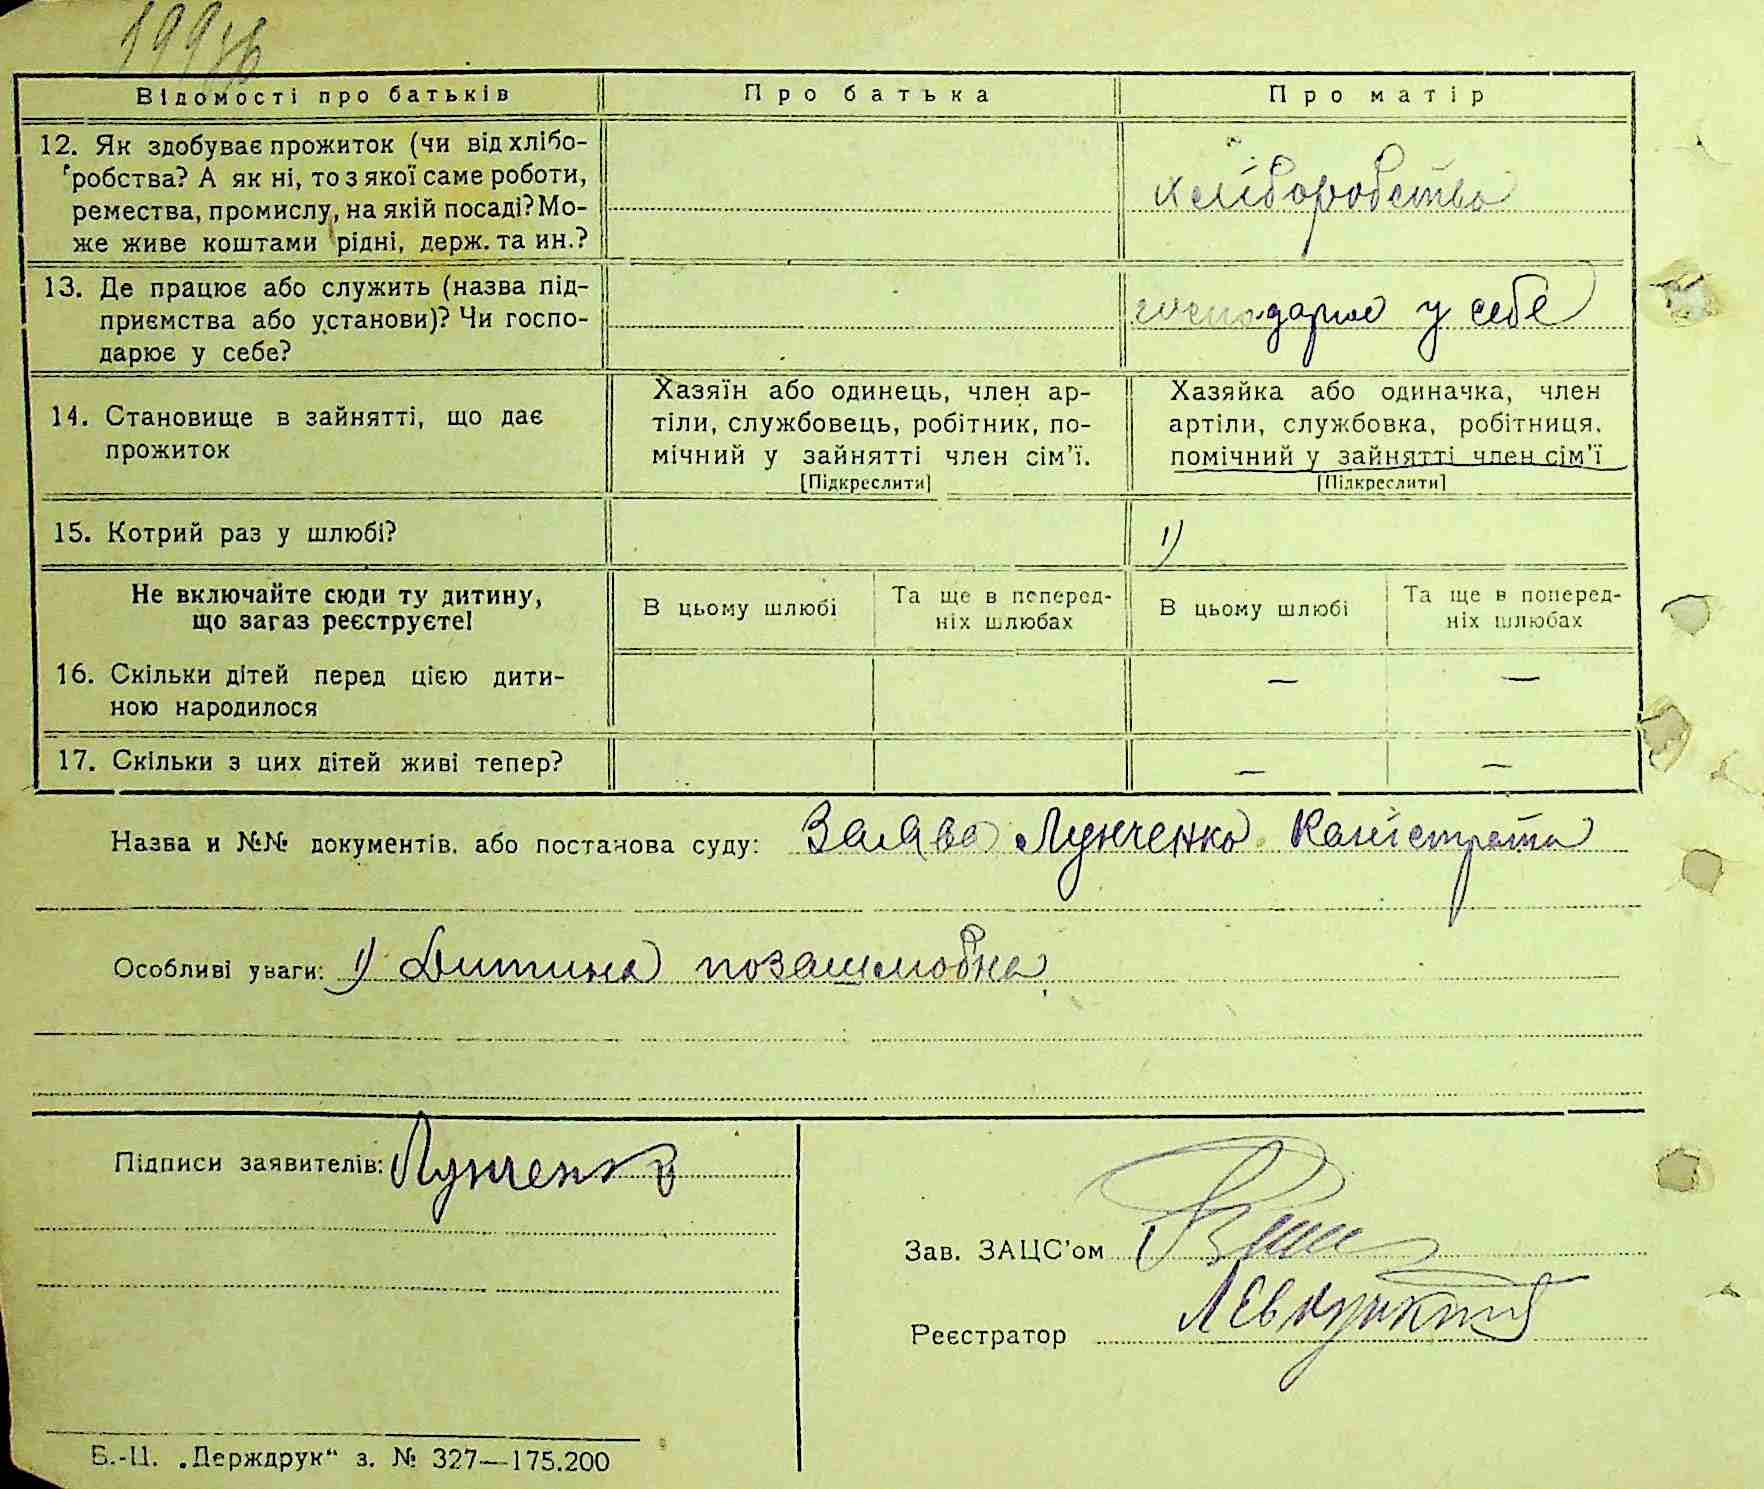 Відомості про батьків Про батька Про матір
12. Як здобуває прожиток (чи від хлібо-
робства? А як ні, то з якої саме роботи,
ремества, промислу, на якій посаді? Мо-
же живе коштами рідні, держ. та ин.?
хліборобство
13. Де працює або служить (назва під-
приємства або установи)? Чи госпо-
дарює у себе?
господарює у себе
14. Становище в зайнятті, що дає
прожиток
Хазяїн або одинець, член ар-
тіли, службовець, робітник, по-
мічний у зайнятті член сім'ї.
[Підкреслити]
Хазяйка або одиначка, член
артіли, службовка, робітниця,
помічний у зайнятті член сім'ї
[Підкреслити]
15. Котрий раз у шлюбі?
1)
Не включайте сюди ту дитину,
що загаз реєструєте!
В цьому шлюбі
Та ще в поперед-
ніх шлюбах
В цьому шлюбі
Та ще в поперед-
ніх шлюбах
16. Скільки дітей перед цією дити-
ною народилося
— —
17. Скільки з цих дітей живі тепер?
— —
Назва и №№ документів, або постанова суду: Заява Лунченко Каністрата
Особливі уваги: 1) Дитина позашлюбна
Підписи заявителів: Лунченко
Зав. ЗАЦС'ом
Реєстратор
Б.-Ц. „Держдрук“ з. № 327—175.200